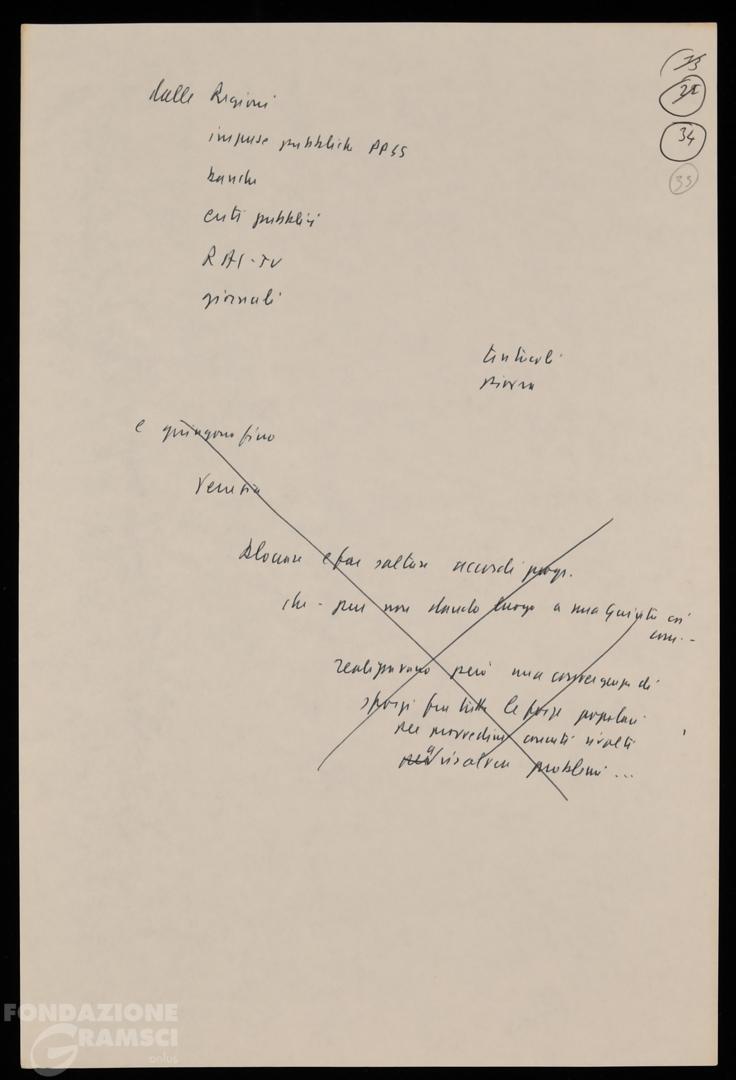 35
34
33
dalle Regioni
imprese pubbliche PPSS
banche
enti pubblici
RAI-TV
giornali
tentacoli
piovra
e giungono fino
Venezia
bloccare e far saltare accordi progr.
che - pur non dando luogo a una Giunta
realizzavano però una convergenza di
sforzi fra tutte le forze popolari
per provvedimenti concreti rivolti
a risolvere problemi ...
FONDAZIONE
GRAMSCI
onlus